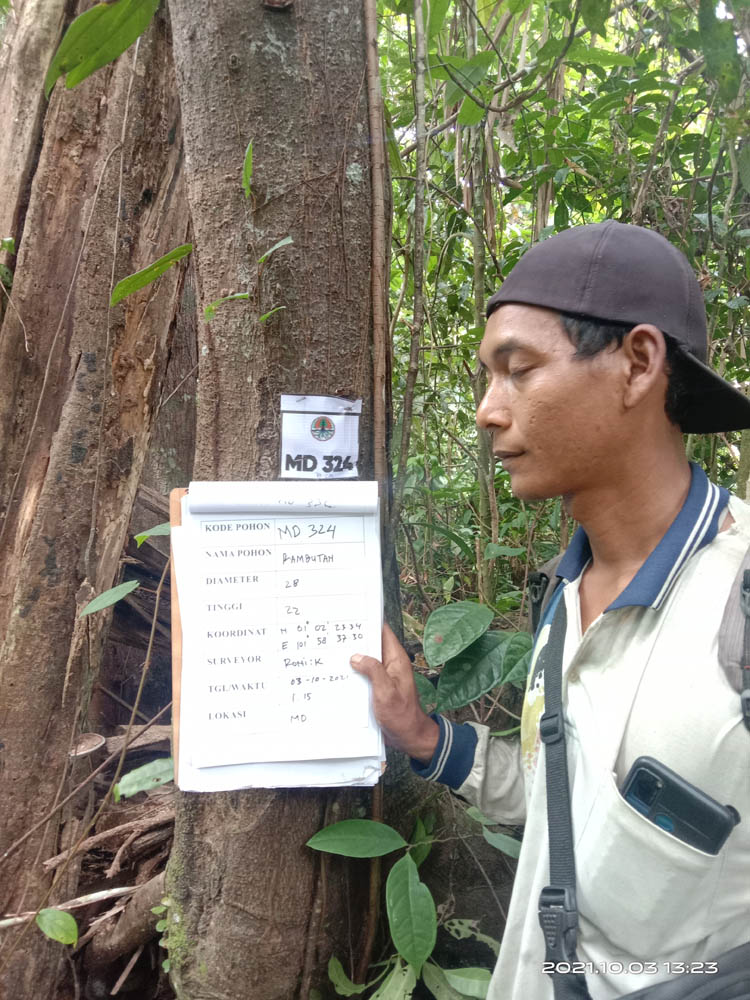 MD 324
KODE POHON MD 324
NAMA POHON RAMBUTAN
DIAMETER 28
TINGGI 22
KOORDINAT N 01° 02' 23 34
E 101° 58 37 30
SURVEYOR Romi:K
TGL/WAKTU 03-10-2021
1 15
LOKASI MD
2021.10.03 13:23